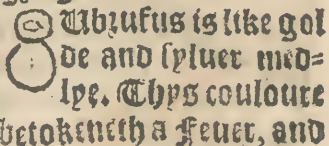 SUbrufus is like gol
de and syluer med=
lye. Thys couloure
betokeneth a Feuer, and